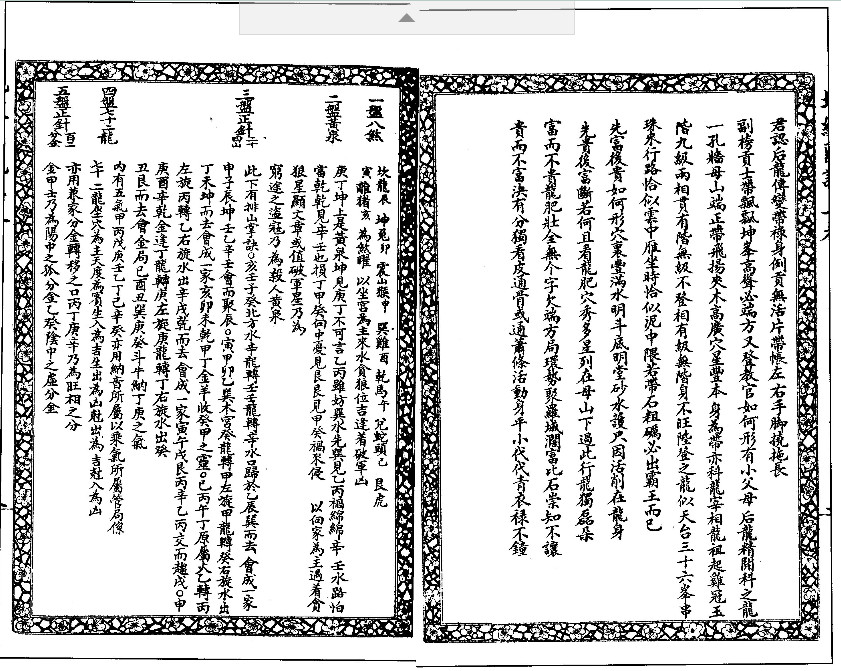 君認后龍傳變帶祿身倒貢無活片帶帳左右手脚撓拖長
副榜貢士帶飄飄坤峯高聲必端方又發教官如何形有小父母后龍精開科之龍
一孔牆母山端正帶飛揚夾木高廣穴星豐本身為帶亦科龍宰相龍祖起雞冠玉
階九級兩相貫有階無級不登相有級無階身不旺陞登之龍似天台三十六峯串
珠来行路恰似雲中雁坐時恰似泥中隈若帶石粗礪必出霸王而已
先富後貴如何形穴裏豐滿水明斗底明堂砂水護尸因活削在龍身
先貴後富斷若何且看龍肥穴秀多星到在母山下過此行龍獨磊朵
富而不貴龍肥壯全無个字欠端方局環勢聚羅城濶富比石崇知不讓
貴而不富決有分獨看皮過骨或通蕭條活動身平小代代青衣祿不鐘
一盤八煞
坎龍辰坤兔卯震山猴申巽雞酉乾馬午兌蛇頭巳艮虎
寅離猪亥為煞曜以坐宮為主来水貪狼位吉逢着破軍凶
二盤黃泉
庚丁坤上是黃泉坤見庚丁不可言乙丙雖妨巽水先巽見乙丙福綿綿辛壬水路怕
當乾乾見辛壬也損丁甲癸向中憂見艮艮見甲癸禍不侵以向家為主遇着貪
狼星顯文章或值破軍星乃為
窮途之盜冠乃為殺人黃泉
三盤正針二十四
此下有排山掌訣○亥壬子癸北方水辛龍轉壬壬龍轉辛水口歸於乙辰巽而去會成一家
申子辰坤壬乙辛壬會而聚辰○寅甲卯乙巽木宮癸龍轉甲左旋甲龍轉癸右旋水出
丁未坤而去會成一家亥卯未乾甲丁金羊收癸甲之靈○巳丙午丁原屬火乙轉丙
左旋丙轉乙右旋水出辛戌乾而去會成一家寅午戌艮丙辛乙丙交而趨戌○申
庚酉辛乾金逹丁龍轉庚左旋庚龍轉丁右旋水出癸
丑艮而去會金局巳酉丑巽庚癸斗牛納丁庚之氣
四盤七十二龍
內有五氣甲丙戊庚壬乙丁己辛癸亦用納音所屬以乘氣所屬管局條
七十二龍坐穴為主天度為賓生入為吉生出為凶尅出為吉尅入為凶
五盤正針百二分金
亦用兼家分金轉移之口丙丁庚辛乃為旺相之分
金甲壬乃為陽中之孤分金乙癸陰中之虛分金